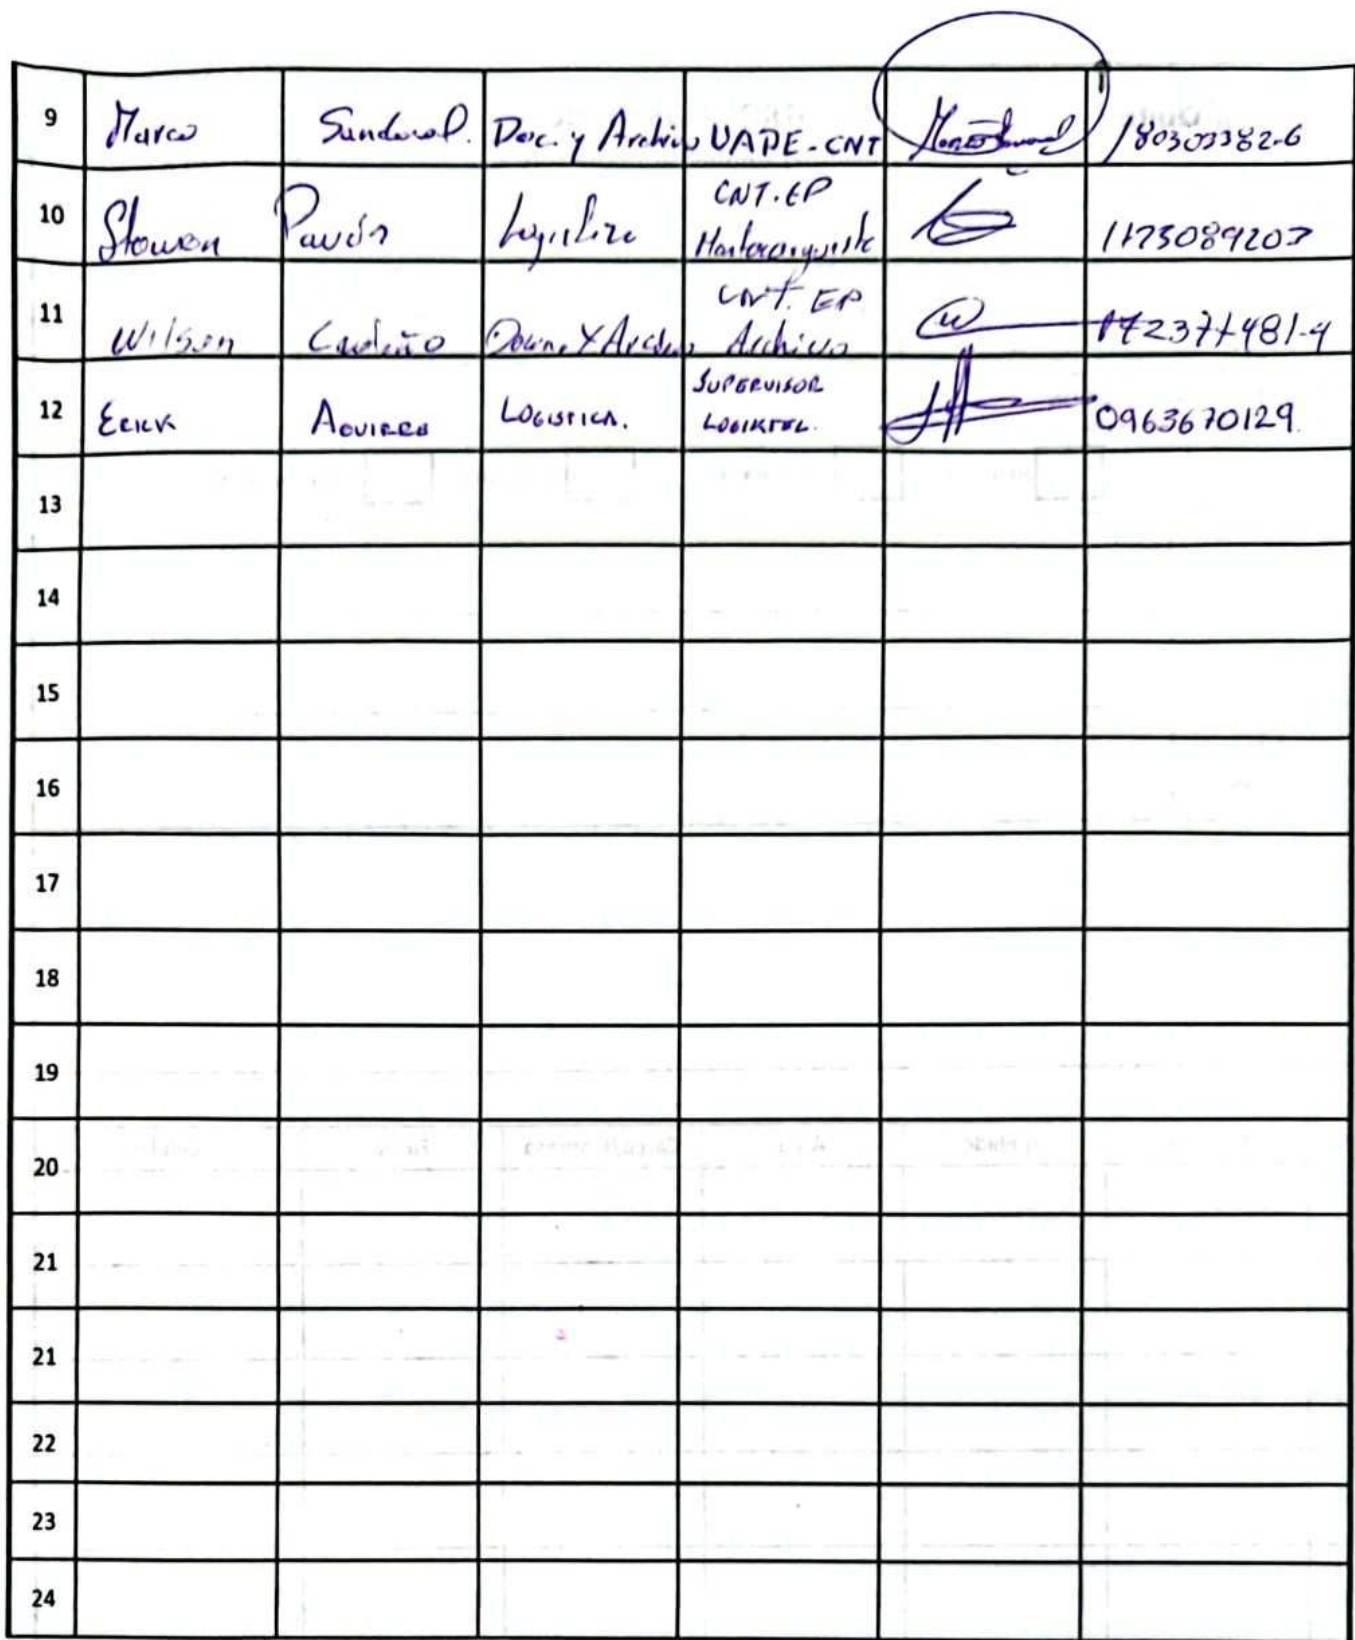 9 Marco Sandoval. Doc. y Archivo UAPE-CNT 180303382-6
10 Stowen Pavón CNT.EP
11 Wilson Cedeño Docum. Y Archivo CNT. EP Archivo
12 Erick Aguirre LOGISTICA. SUPERVISOR LOGIKTEL. 0963670129.
13
14
15
16
17
18
19
20
21
21
22
23
24